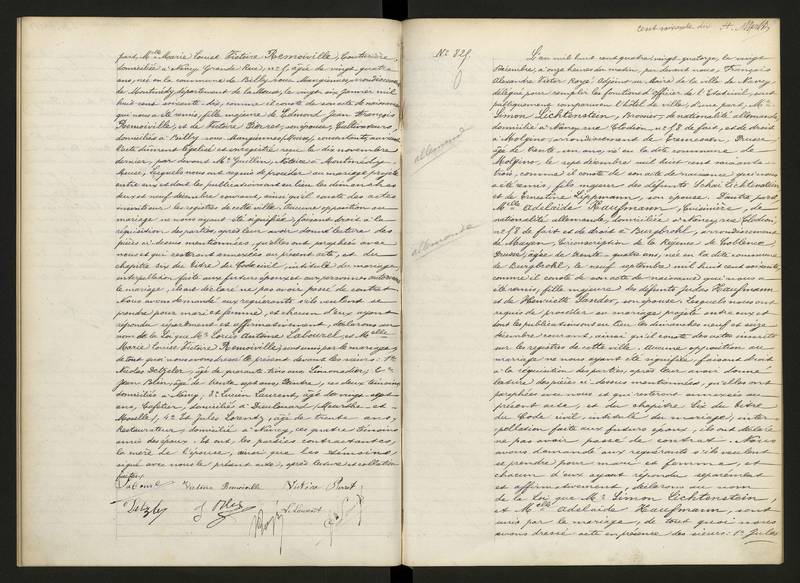 part, M.elle Marie Louise Victoire Remoiville, Couturière,
domiciliée à Nancy Grande Rue, n° 5, âgée de vingt quatre
ans, née en la commune de Billy sous Mangiennes, arrondissement
de Montmédy département de la Meuse, le vingt six janvier mil
huit cent soixante-dix, comme il conste de son acte de naissance
qui nous a été remis, fille majeure de Edmond Jean François
Remoiville, et de Victoire Pierret, son épouse, Cultivateurs,
domiciliés à Billy sous Mangiennes (Meuse), consentants, aux
reçu le dix novembre
dernier, par devant M.e Guillin, Notaire à Montmédy
Meuse, Lesquels nous ont requis de procéder au mariage projeté
entre eux et dont les publications ont eu lieu les dimanches
deux et neuf décembre courant, ainsi qu'il conste des actes
inscrits sur les registres de cette ville. Aucune opposition au
mariage ne nous ayant été signifiée, faisant droit à la
réquisition des parties, après leur avoir donné lecture des
pièces ci-dessus mentionnées, qu'elles ont paraphées avec
nous et qui resteront annexées au présent acte, et du
chapitre six du titre du Code civil, intitulé du mariage,
interpellation faite aux futurs époux et aux personnes autorisant
le mariage, ils ont déclaré ne pas avoir passé de contrat.
Nous avons demandé aux requérants s'ils veulent se
prendre pour mari et femme, et chacun d'eux ayant
répondu séparément et affirmativement, déclarons au
nom de la Loi que M.r Louis Antoine Labourel et M.elle
Marie Louise Victoire Remoiville, sont unis par le mariage,
de tout quoi nous avons dressé le présent devant les sieurs: 1°
Nicolas Detzler, âgé de quarante trois ans, Limonadier; 2°
Jean Blin, âgé de trente sept ans, Peintre, ces deux témoins
domiciliés à Nancy; 3° Lucien Laurent, âgé de vingt sept
ans, Cafetier, domicilié à Dieulouard (Meurthe et
Moselle); 4° et Jules Lorentz, âgé de trente ans,
Restaurateur, domicilié à Nancy, ces quatre témoins
amis des époux. Et ont, les parties contractantes,
la mère de l'épouse, ainsi que les témoins,
signé avec nous le présent acte, après lecture et collation
faites.
Labourel Victoire Remoiville Victoire Pierret
Detzler J Blin
A. Laurent
cent soixante dix
N° 829
allemand
allemande
L'an mil huit cent quatre vingt quatorze, le vingt
décembre, à onze heures du matin, par devant nous, François
Alexandre Victor Rozé Adjoint au Maire de la ville de Nancy,
délégué pour remplir les fonctions d'officier de l'Etat civil, sont
publiquement comparus en l'hôtel de ville; d'une part, M.r
Simon Lichtenstein, Brossier, de nationalité allemande,
domicilié à Nancy rue Clodion n° 8 de fait, et de droit
à Molgino, arrondissement de Tremessen, Prusse
âgé de trente un ans, né en la dite commune de
Molgino, le sept décembre mil huit cent soixante-
trois, comme il conste de son acte de naissance qui nous
a été remis, fils majeur des défunts Lichtenstein
et de Ernestine Lippmann, son épouse; D'autre part,
M.elle Adelaïde Kaufmann, Cuisinière, de
nationalité allemande, domiciliée à Nancy rue Clodion,
n° 8 de fait et de droit à Burgbrohl, arrondissement
de Mayen, Circonscription de la Régence de Coblence
Prusse, âgée de trente quatre ans, née en la dite commune
de Burgbrohl, le neuf septembre mil huit cent soixante,
comme il conste de son acte de naissance qui nous a
été remis, fille majeure des défunts Judas Kaufmann
et de Henriette Gander, son épouse. Lesquels nous ont
requis de procéder au mariage projeté entre eux et
dont les publications ont eu lieu les dimanches neuf et seize
décembre courant, ainsi qu'il conste des actes inscrits
sur les registres de cette ville. Aucune opposition au
mariage ne nous ayant été signifiée, faisant droit
à la réquisition des parties, après leur avoir donné
lecture des pièces ci-dessus mentionnées, qu'elles ont
paraphées avec nous et qui resteront annexées au
présent acte, et du chapitre six du titre
du Code civil, intitulé du mariage, inter-
pellation faite aux futurs époux, ils ont déclaré
ne pas avoir passé de contrat. Nous
avons demandé aux requérants s'ils veulent
se prendre pour mari et femme, et
chacun d'eux ayant répondu séparément
et affirmativement, déclarons au nom
de la loi que M.r Simon Lichtenstein,
et M.elle Adelaïde Kaufmann, sont
unis par le mariage, de tout quoi nous
avons dressé acte en présence des sieurs: 1° Jules